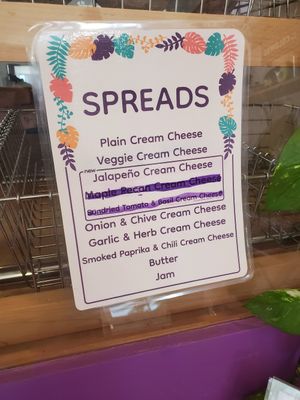 SPREADS
Plain Cream Cheese
Veggie Cream Cheese
new
Jalapeño Cream Cheese
Maple Pecan Cream Cheese
Sundried Tomato & Basil Cream Cheese
Onion & Chive Cream Cheese
Garlic & Herb Cream Cheese
Smoked Paprika & Chili Cream Cheese
Butter
Jam